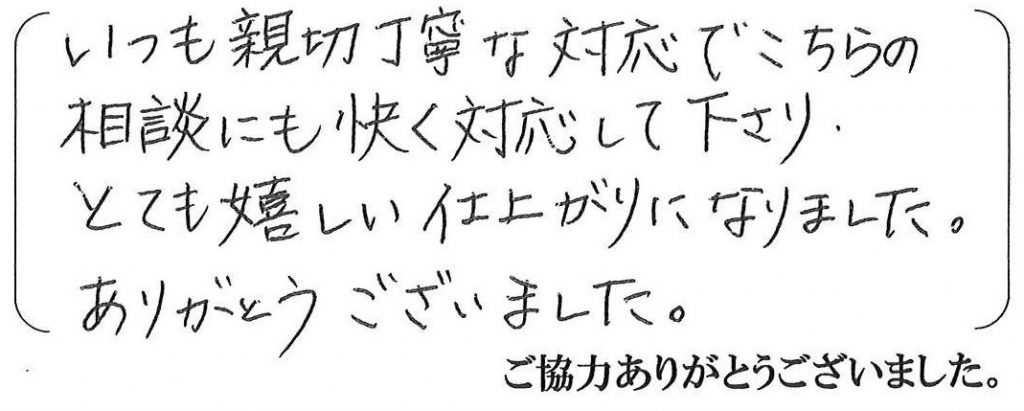 いつも親切丁寧な対応でこちらの
相談にも快く対応して下さり、
とても嬉しい仕上がりになりました。
ありがとうございました。
ご協力ありがとうございました。